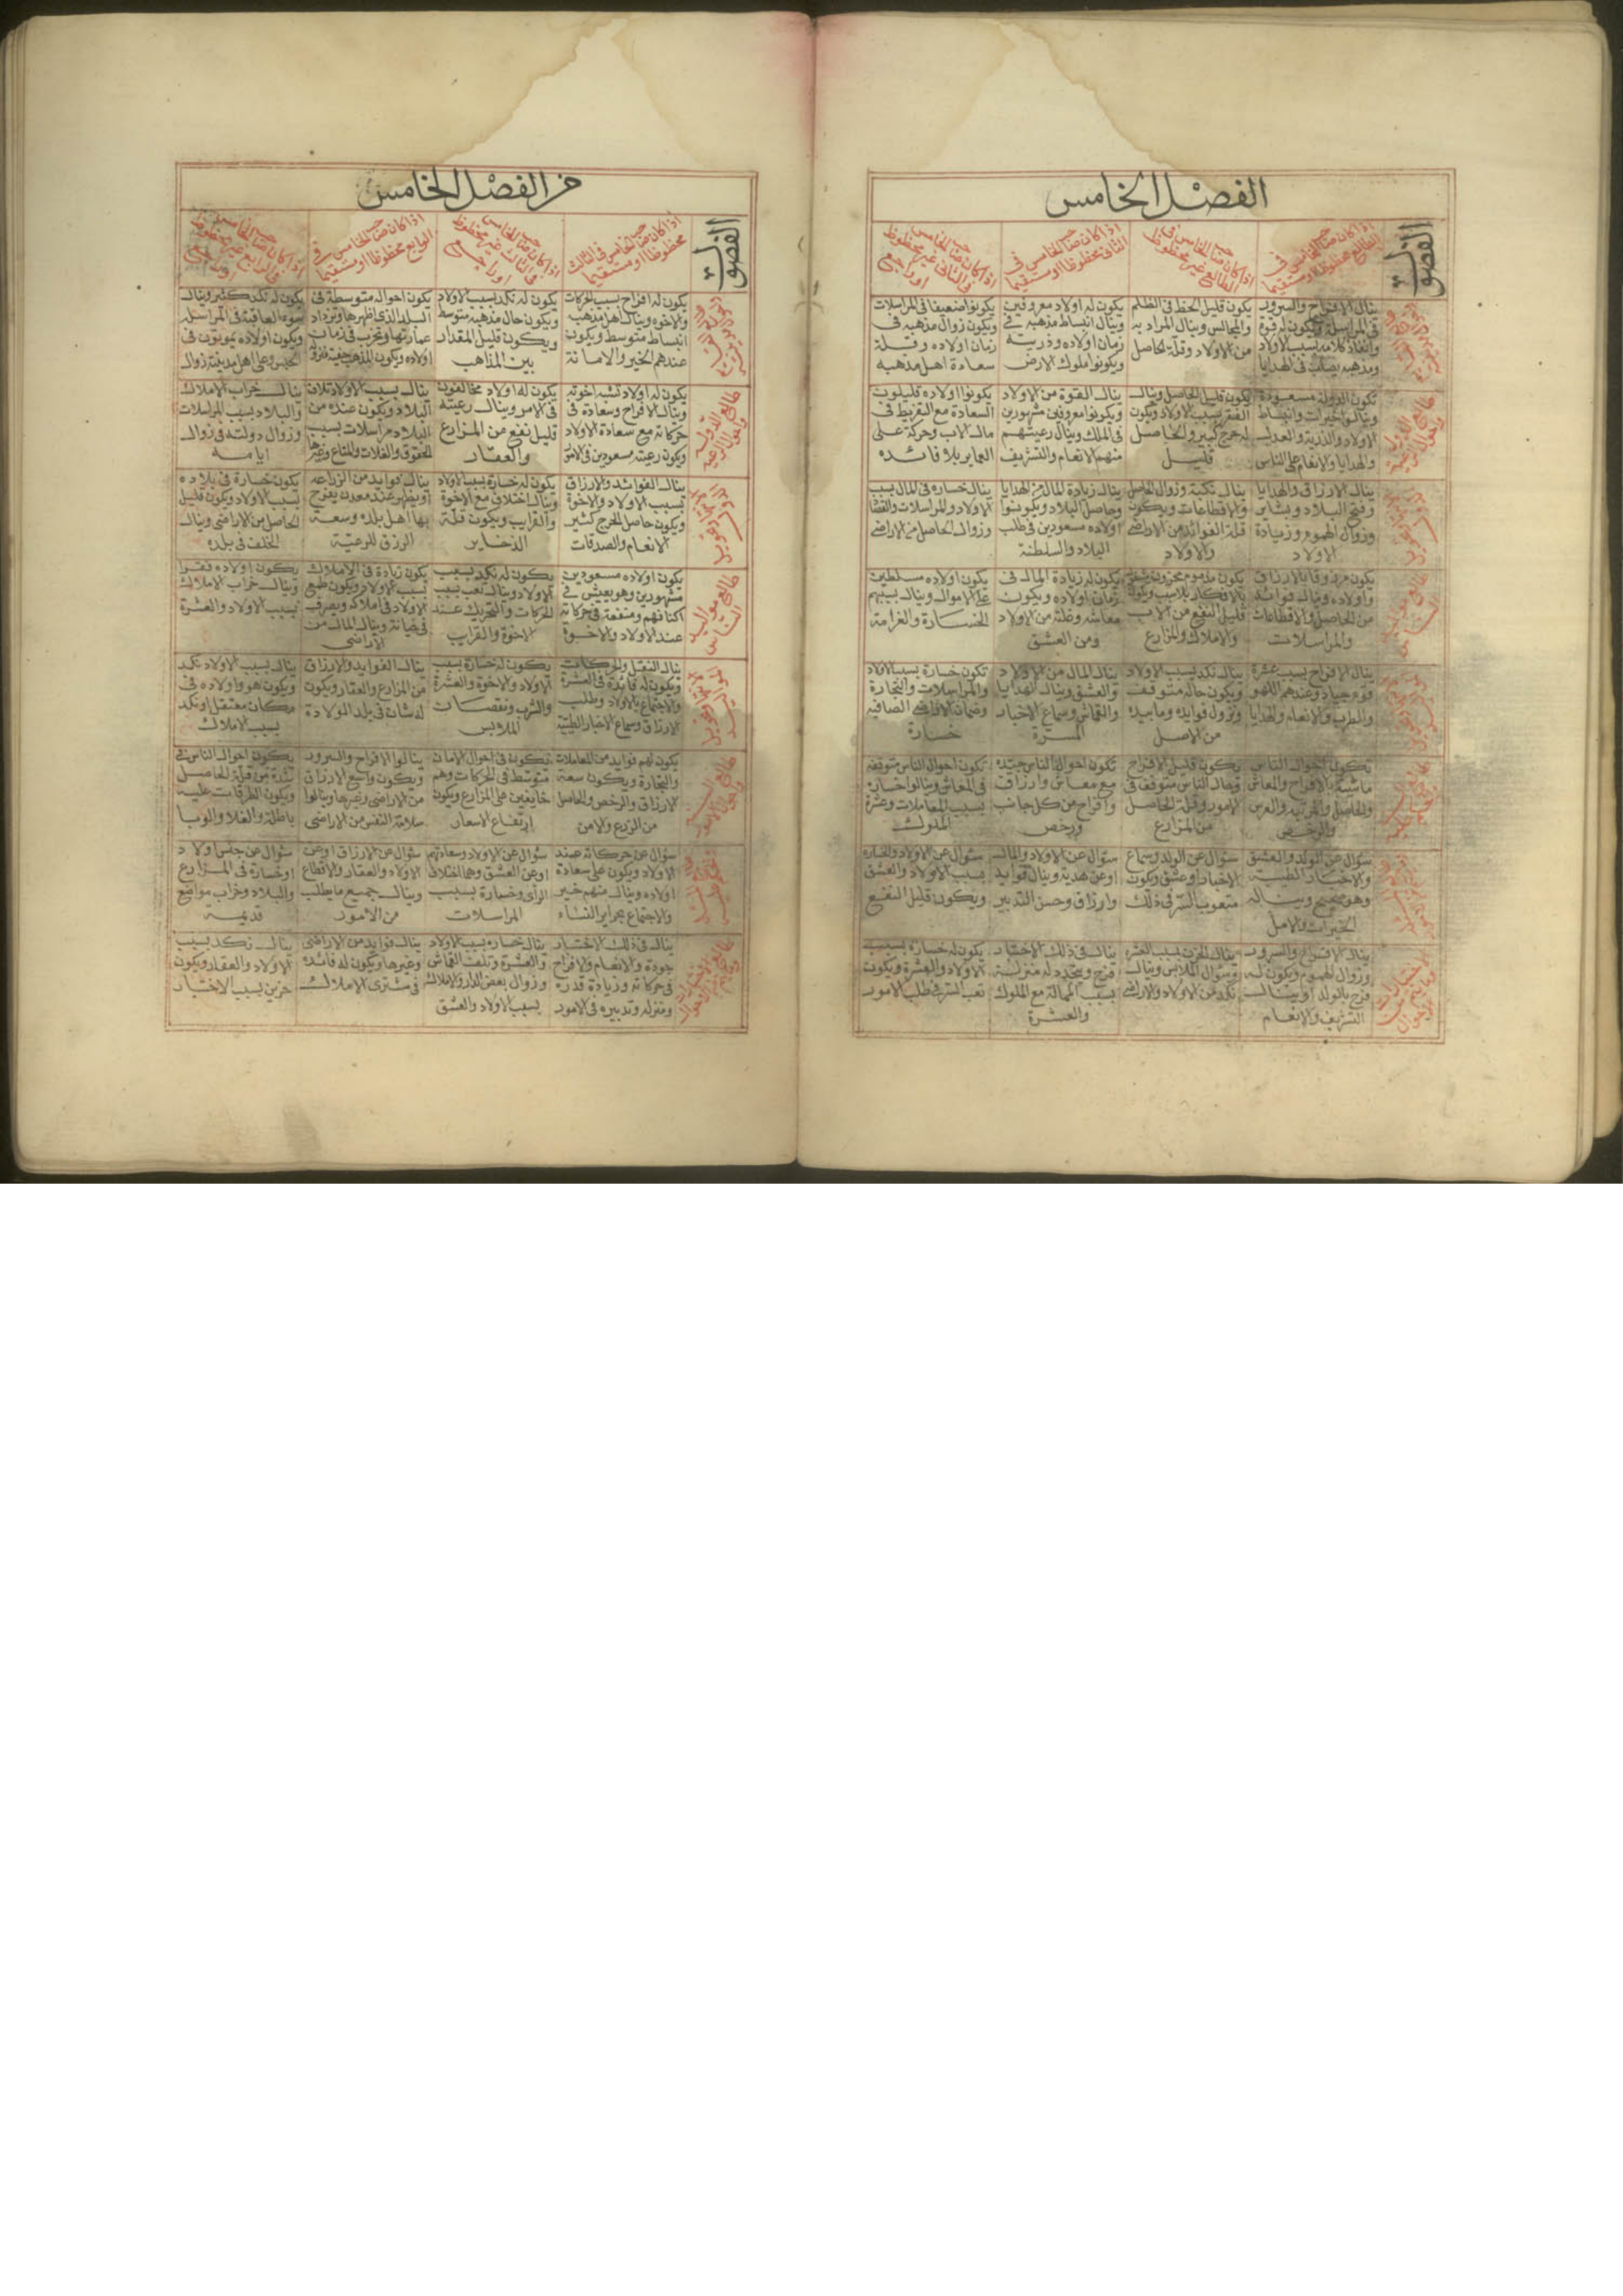 الفصل الخامس
الفصول
اذا كان صاحب الخامس في
الطالع محفوظا او مستقيما
اذا كان صاحب الخامس في
الطالع غير محفوظ
اذا كان صاحب الخامس في
الثاني محفوظا او مستقيما
اذا كان صاحب الخامس
في الثاني غير محفوظ
او راجع
ينال الافراح والسرور
في المراسلة ويكون له قوة
وانفاذ كلامه بسبب الاولاد
ومذهبه يصلب في الهدايا
يكون قليل الحظ في الظلم
والمجالس وينال المراد به
من الاولاد وقلة الحاصل
يكون له اولاد معروفين
وينال انبساط مذهبه في
زمان اولاده وذريته
ويكونوا ملوك الارض
يكونوا ضعيفا في المراسلات
ويكون زوال مذهبه في
زمان اولاده وقلة
سعادة اهل مذهبه
طالع الدولة
واحوال الرعية
تكون الدولة مسعودة
وينال الخيرات وانبساط
الاولاد والذرية والعدل
والهدايا والانعام على الناس
يكون قليل الحاصل وينال
الفقر بسبب الاولاد ويكون
له خرج كبير والحاصل
قليل
ينال القوة من الاولاد
ويكونوا معروفين مشهورين
في الملك وينال رعيتهم
منهم الانعام والتشريف
يكونوا اولاده قليلون
السعادة مع التفريط في
مال الاب وحركة على
العماير بلا فائده
ينال الارزاق والهدايا
وفتح البلاد وبشاير
وزوال الهموم وزيادة
الاولاد
ينال نكبة وزوال الحاصل
والاقطاعات ويكون
قلة الفوائد من الاراضي
والاولاد
ينال زيادة المال من الهدايا
وحاصل البلاد ويكونوا
اولاده مسعودين في طلب
البلاد والسلطنة
ينال خساره في المال بسبب
الاولاد والمراسلات والقضا
وزوال الحاصل من الاراضي
يكون مرزوقا بالارزاق
واولاده وينال فوائد
من الحاصل والاقطاعات
والمراسلات
قليل النفع من الاب
والاملاك والمزارع
يكون له زيادة المال في
زمان اولاده ويكون
معاشه وغلته من الاولاد
ومن العشق
يكون اولاده مسلطين
على الاموال وينال بسببهم
الخسارة والغرامة
ينال الافراح بسبب عشرة
قوم جياد وعندهم اللهو
والطرب والانعام والهدايا
ينال نكد بسبب الاولاد
ويكون حاله متوقف
وتزول فوايده وما بيده
من الاصل
ينال المال من الاولاد
والعشق وينال الهدايا
والقماش وسماع الاخبار
المسرة
تكون خسارة بسبب الاولاد
والمراسلات والتجارة
وضمان الاراضي الصافيه
خسارة
تكون احوال الناس
ماشية بالافراح والمعاش
والرخص
يكون قليل الافراح
وحال الناس متوقفة في
الامور وقلة الحاصل
من المزارع
تكون احوال الناس جيده
مع معاش وارزاق
وافراح من كل جانب
ورخص
تكون احوال الناس متوقفه
في المعاش وينالوا خساره
بسبب المعاملات وعشرة
الملوك
سؤال عن الولد والعشق
والاخبار الطيبة
وهو صحيح وينال
الخيرات والامل
سؤال عن الولد وسماع
الاخبار او عشق ويكون
متعوب السر في ذلك
سؤال عن الاولاد والمال
او عن هدية وينال فوايد
وارزاق وحسن التدبير
سؤال عن الاولاد والخساره
بسبب الاولاد والعشق
ويكون قليل النفع
ينال الافراح والسرور
وزوال الهموم ويكون له
فرح بالولد او ينال
التشريف والانعام
ينال الحزن بسبب العشره
وسؤال الملابس وينال
نكد من الاولاد والاراضي
ينال في ذلك الاختيار
فرح ويتجدد له منزلة
بسبب المحالة مع الملوك
والعشرة
يكون له خسارة بسبب
الاولاد والعشرة ويكون
تعب السر في طلب الامور
من الفصل الخامس
الفصول
اذا كان صاحب الخامس في الثالث
محفوظا او مستقيما
اذا كان صاحب الخامس
في الثالث غير محفوظ
او راجع
اذا كان صاحب الخامس في
الرابع محفوظا او مستقيما
اذا كان صاحب الخامس
في الرابع غير محفوظ
او راجع
يكون له افراح بسبب الحركات
والاخوه وينال اهل مذهبه
انبساط متوسط ويكون
عندهم الخير والامانة
يكون له نكد بسبب الاولاد
ويكون حال مذهبه متوسط
ويكون قليل المقدار
بين المذاهب
يكون احواله متوسطة في
البلد الذي اظهرها وتزداد
عمارتها وتخرب في زمان
اولاده ويكون المذهب خفية
يكون له نكد كثير وينال
سوء العاقبة في المراسله
ويكون اولاده يموتون في
الحبس وعلى اهل مدينته زوال
طالع الدولة
واحوال الرعية
يكون له اولاد تشبه اخوته
وينال الافراح وسعادة في
حركاته مع سعادة الاولاد
ويكون رعيته مسعودين في الامور
يكون له اولاد مخالفون
في الامر وينال رعيته
قليل نفع من المزارع
والعقار
ينال بسبب الاولاد تلاف
البلاد ويكون عنده من
البلاد مراسلات بسبب
الحقوق والغلات والمتاع وغيرها
ينال خراب الاملاك
والبلاد بسبب المراسلات
وزوال دولته في زوال
ايامه
ينال الفوائد والارزاق
بسبب الاولاد والاخوة
ويكون حاصل الخرج كثير
الانعام والصدقات
يكون له خسارة بسبب الاولاد
وينال اختلاف مع الاخوة
والقرايب ويكون قلة
الذخاير
ينال فوايد من الزراعه
او يظهر عنده معدن يفرح
بها اهل بلده وسعة
الرزق للرعية
يكون خسارة في بلاده
بسبب الاولاد ويكون قليل
الحاصل من الاراضي وينال
الخلف في بلده
طالع مواليد
الناس
يكون اولاده مسعودين
مشهورين وهو يعيش في
اكنافهم ومنفعة في حركاته
عند الاولاد والاخوة
يكون له نكد بسبب
الاولاد وينال تعب بسبب
الحركات والتحريك عند
الاخوة والقرايب
يكون زيادة في الاملاك
بسبب الاولاد ويكون طمع
الاولاد في املاكه ويصرف
في خيانة وينال المال من
الاراضي
يكون اولاده فقرا
وينال خراب الاملاك
بسبب الاولاد والعشرة
ينال النقل والحركات
ويكون له فائدة في العشرة
والاجتماع بالاولاد وطلب
الارزاق وسماع الاخبار الطيبة
يكون له خسارة بسبب
الاولاد والاخوة والعشرة
والشرب ونقصان
الملابس
ينال الفوايد والارزاق
من المزارع والعقار ويكون
له شان في بلد المولادة
ينال بسبب الاولاد نكد
ويكون هو واولاده في
مكان معتقل او نكد
بسبب الاملاك
يكون لهم فوايد من المعاملات
والتجارة ويكون سعة
الارزاق والرخص والحاصل
من الزرع والامن
تكون في احوال الامان
متوسط في الحركات وهم
خايفين على المزارع ويكون
ارتفاع الاسعار
ينالوا الافراح والسرور
ويكون واسع الارزاق
من الاراضي وغيرها وينالوا
سلامة النفس من الاراضي
يكون احوال الناس في
شدة من قلة الحاصل
ويكون الطرقات عليه
باطلة والغلا والوبا
سؤال عن حركاته عند
الاولاد ويكون على سعادة
اولاده وينال منهم خير
والاجتماع بحراير النساء
سؤال عن الاولاد وسعادتهم
او عن العشق وهما اختلاف
الراي وخسارة بسبب
المراسلات
سؤال عن الارزاق او عن
الاولاد والعقار والاقطاع
وينال جميع ما يطلب
من الامور
سؤال عن جلس اولاد
او خسارة في المزارع
والبلاد وخراب مواضع
قديمة
ينال في ذلك الاختيار
جودة والانعام والافراح
في حركاته وزيادة قدره
ومنزله وتدبيره في الامور
ينال خساره بسبب الاولاد
والعشرة وتلف القماش
وزوال بعض الدار والاملاك
بسبب الاولاد والعشق
ينال فوايد من الاراضي
وغيرها ويكون له فائده
في مشترى الاملاك
ينال نكد بسبب
الاولاد والعقار ويكون
حزين بسبب الاختيار